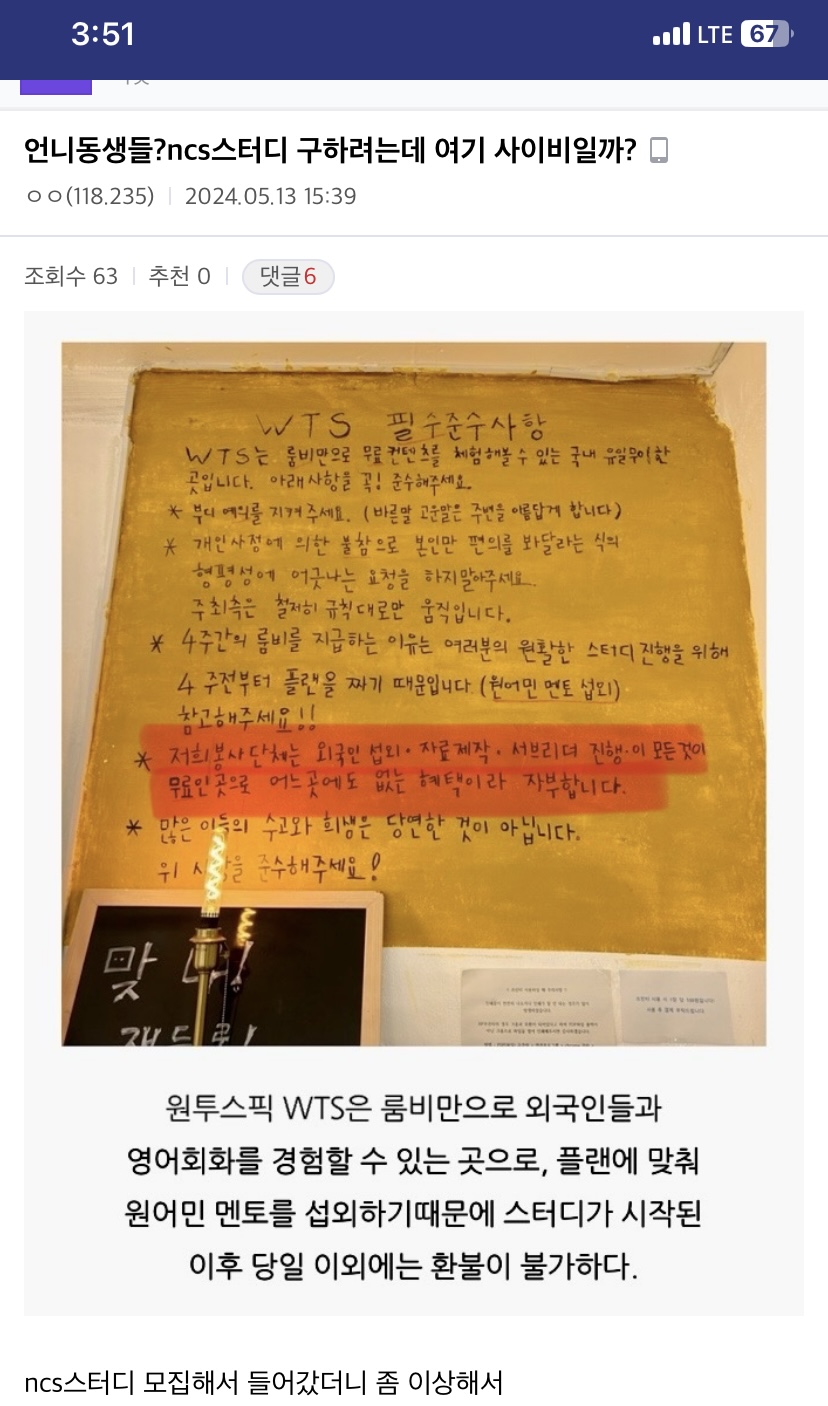 3:51
LTE 67
언니동생들?ncs스터디 구하려는데 여기 사이비일까?
ㅇㅇ(118.235) | 2024.05.13 15:39
조회수 63 | 추천 0 | 댓글6
WTS 필수준수사항
WTS는 룸비만으로 무료컨텐츠를 체험해볼 수 있는 국내 유일무이한
곳입니다. 아래사항을 꼭! 준수해주세요.
* 부디 예의를 지켜주세요. (바른말 고운말은 주변을 아름답게 합니다)
* 개인사정에 의한 불참으로 본인만 편의를 봐달라는 식의
형평성에 어긋나는 요청을 하지말아주세요.
주최측은 철저히 규칙대로만 움직입니다.
* 4주간의 룸비를 지급하는 이유는 여러분의 원활한 스터디진행을 위해
4주전부터 플랜을 짜기 때문입니다 (원어민 멘토 섭외)
참고해주세요!!
* 저희봉사단체는 외국인 섭외·자료제작·서브리더 진행·이 모든것이
무료인곳으로 어느곳에도 없는 혜택이라 자부합니다.
* 많은 이들의 수고와 희생은 당연한 것이 아닙니다.
위 사항을 준수해주세요!
맞
원투스픽 WTS은 룸비만으로 외국인들과
영어회화를 경험할 수 있는 곳으로, 플랜에 맞춰
원어민 멘토를 섭외하기때문에 스터디가 시작된
이후 당일 이외에는 환불이 불가하다.
ncs스터디 모집해서 들어갔더니 좀 이상해서